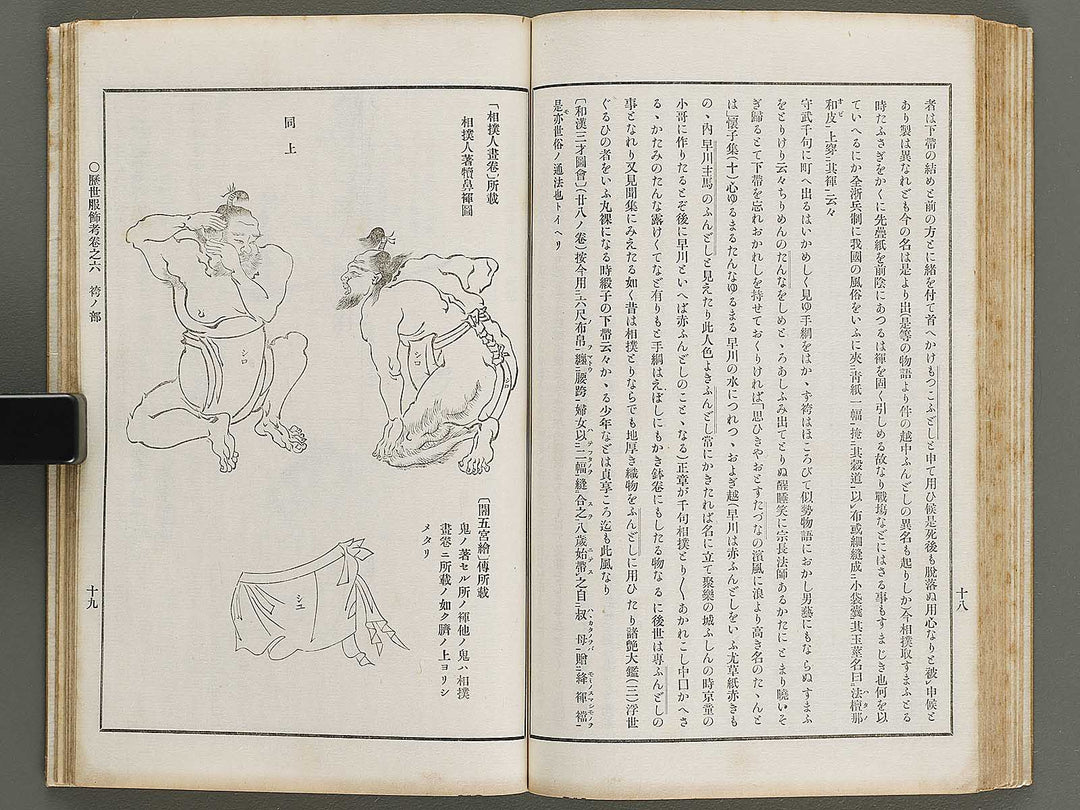 者は下帶の結めと前の方とに緒を付て首へかけもつこふどしと申て用ひ候是死後も脫落ぬ用心なりと被レ申候と
あり製は異なれども今の名は是より出是等の物語より件の越中ふんどしの異名も起りしか今相撲取すまふとる
時たふさぎをかくに先疊紙を前陰にあつるは褌を固く引しめる故なり戰場などにはさる事もすまじき也何を以
ていへるにか全浙兵制に我國の風俗をいふに夾二靑紙一幅一掩二其穀道一以レ布或細縫成二小袋囊二其玉莖名曰二法檀那
和皮一上穿二其褌一云々
守武千句に町へ出るはいかめしく見ゆ手綱をはかゝす袴はほころびて似勢物語におかし男藝にもならぬすまふ
をとりけり云々ちりめんのたんなをしめとゝろあしふみ出てとりぬ醒睡笑に宗長法師あるかたにとまり曉いそ
ぎ歸るとて下帶を忘れおかれしを持せておくりければ「思ひきやおとすたづなの濱風に浪より高き名のたゝんと
は」懷子集(十)心ゆるまるたんなゆるまる早川の水につれつゝおよぎ越(早川は赤ふんどしをいふ尤草紙赤きも
の、內早川主馬のふんどしと見えたり此人色よきふんどし常にかきたれば名に立て聚樂の城ふしんの時京童の
小哥に作りたるとぞ後に早川といへば赤ふんどしのことゝなる)正章が千句相撲とり〱あかれこし中口かへさ
るゝかたみのたな露けくてなど有りもと手綱はえぼしにもかき鉢卷にもしたる物なるに後世は專ふんどしの
事となれり又見聞集にみえたる如く昔は相撲とりならでも地厚き織物をふんどしに用ひたり諸艶大鑑(三)浮世
ぐるひの者をいふ丸裸になる時緞子の下帶云々かゝる少年などは貞享ころ迄も此風なり
〔和漢三才圖會〕(廿八ノ卷)按今用二六尺布帛一纏二腰跨一婦女以二二幅一縫二合之一八歲始帶レ之自二叔母一贈二絳褌襠一
是亦世俗ノ通法也トイヘリ
十八
「相撲人畫卷」所載
相撲人著犢鼻褌圖
同上
シロ
シロ
〔閻五宮繪〕傳所載
鬼ノ著セル所ノ褌他ノ鬼ハ相撲
畫卷ニ所載ノ如ク臍ノ上ヨリシ
メタリ
○歷世服飾考卷之六 袴ノ部
十九